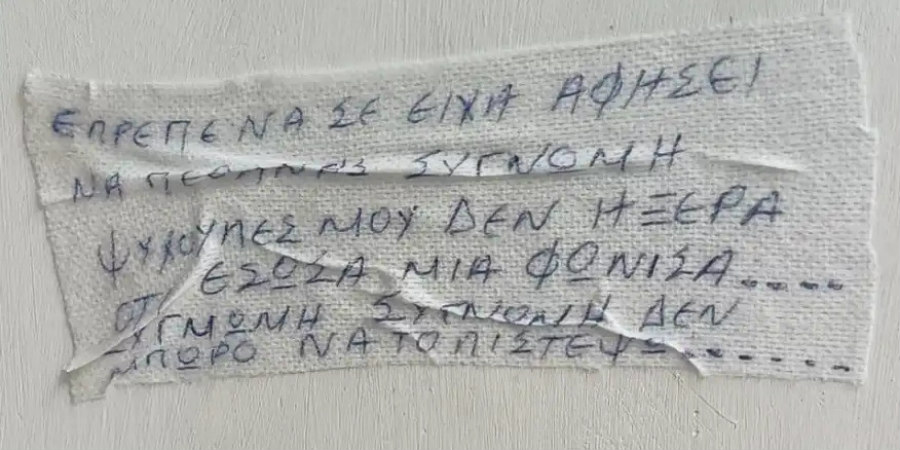 ΕΠΡΕΠΕ ΝΑ ΣΕ ΕΙΧΑ ΑΦΗΣΕΙ
ΝΑ ΠΕΘΑΝΕΙΣ ΣΥΓΝΟΜΗ
ΨΥΧΟΥΛΕΣ ΜΟΥ ΔΕΝ ΗΞΕΡΑ
ΟΤΙ ΕΣΩΣΑ ΜΙΑ ΦΩΝΙΣΑ.....
ΣΥΓΜΩΜΗ ΣΥΓΝΩΜΗ ΔΕΝ
ΜΠΩΡΟ ΝΑ ΤΟ ΠΙΣΤΕΨΩ......